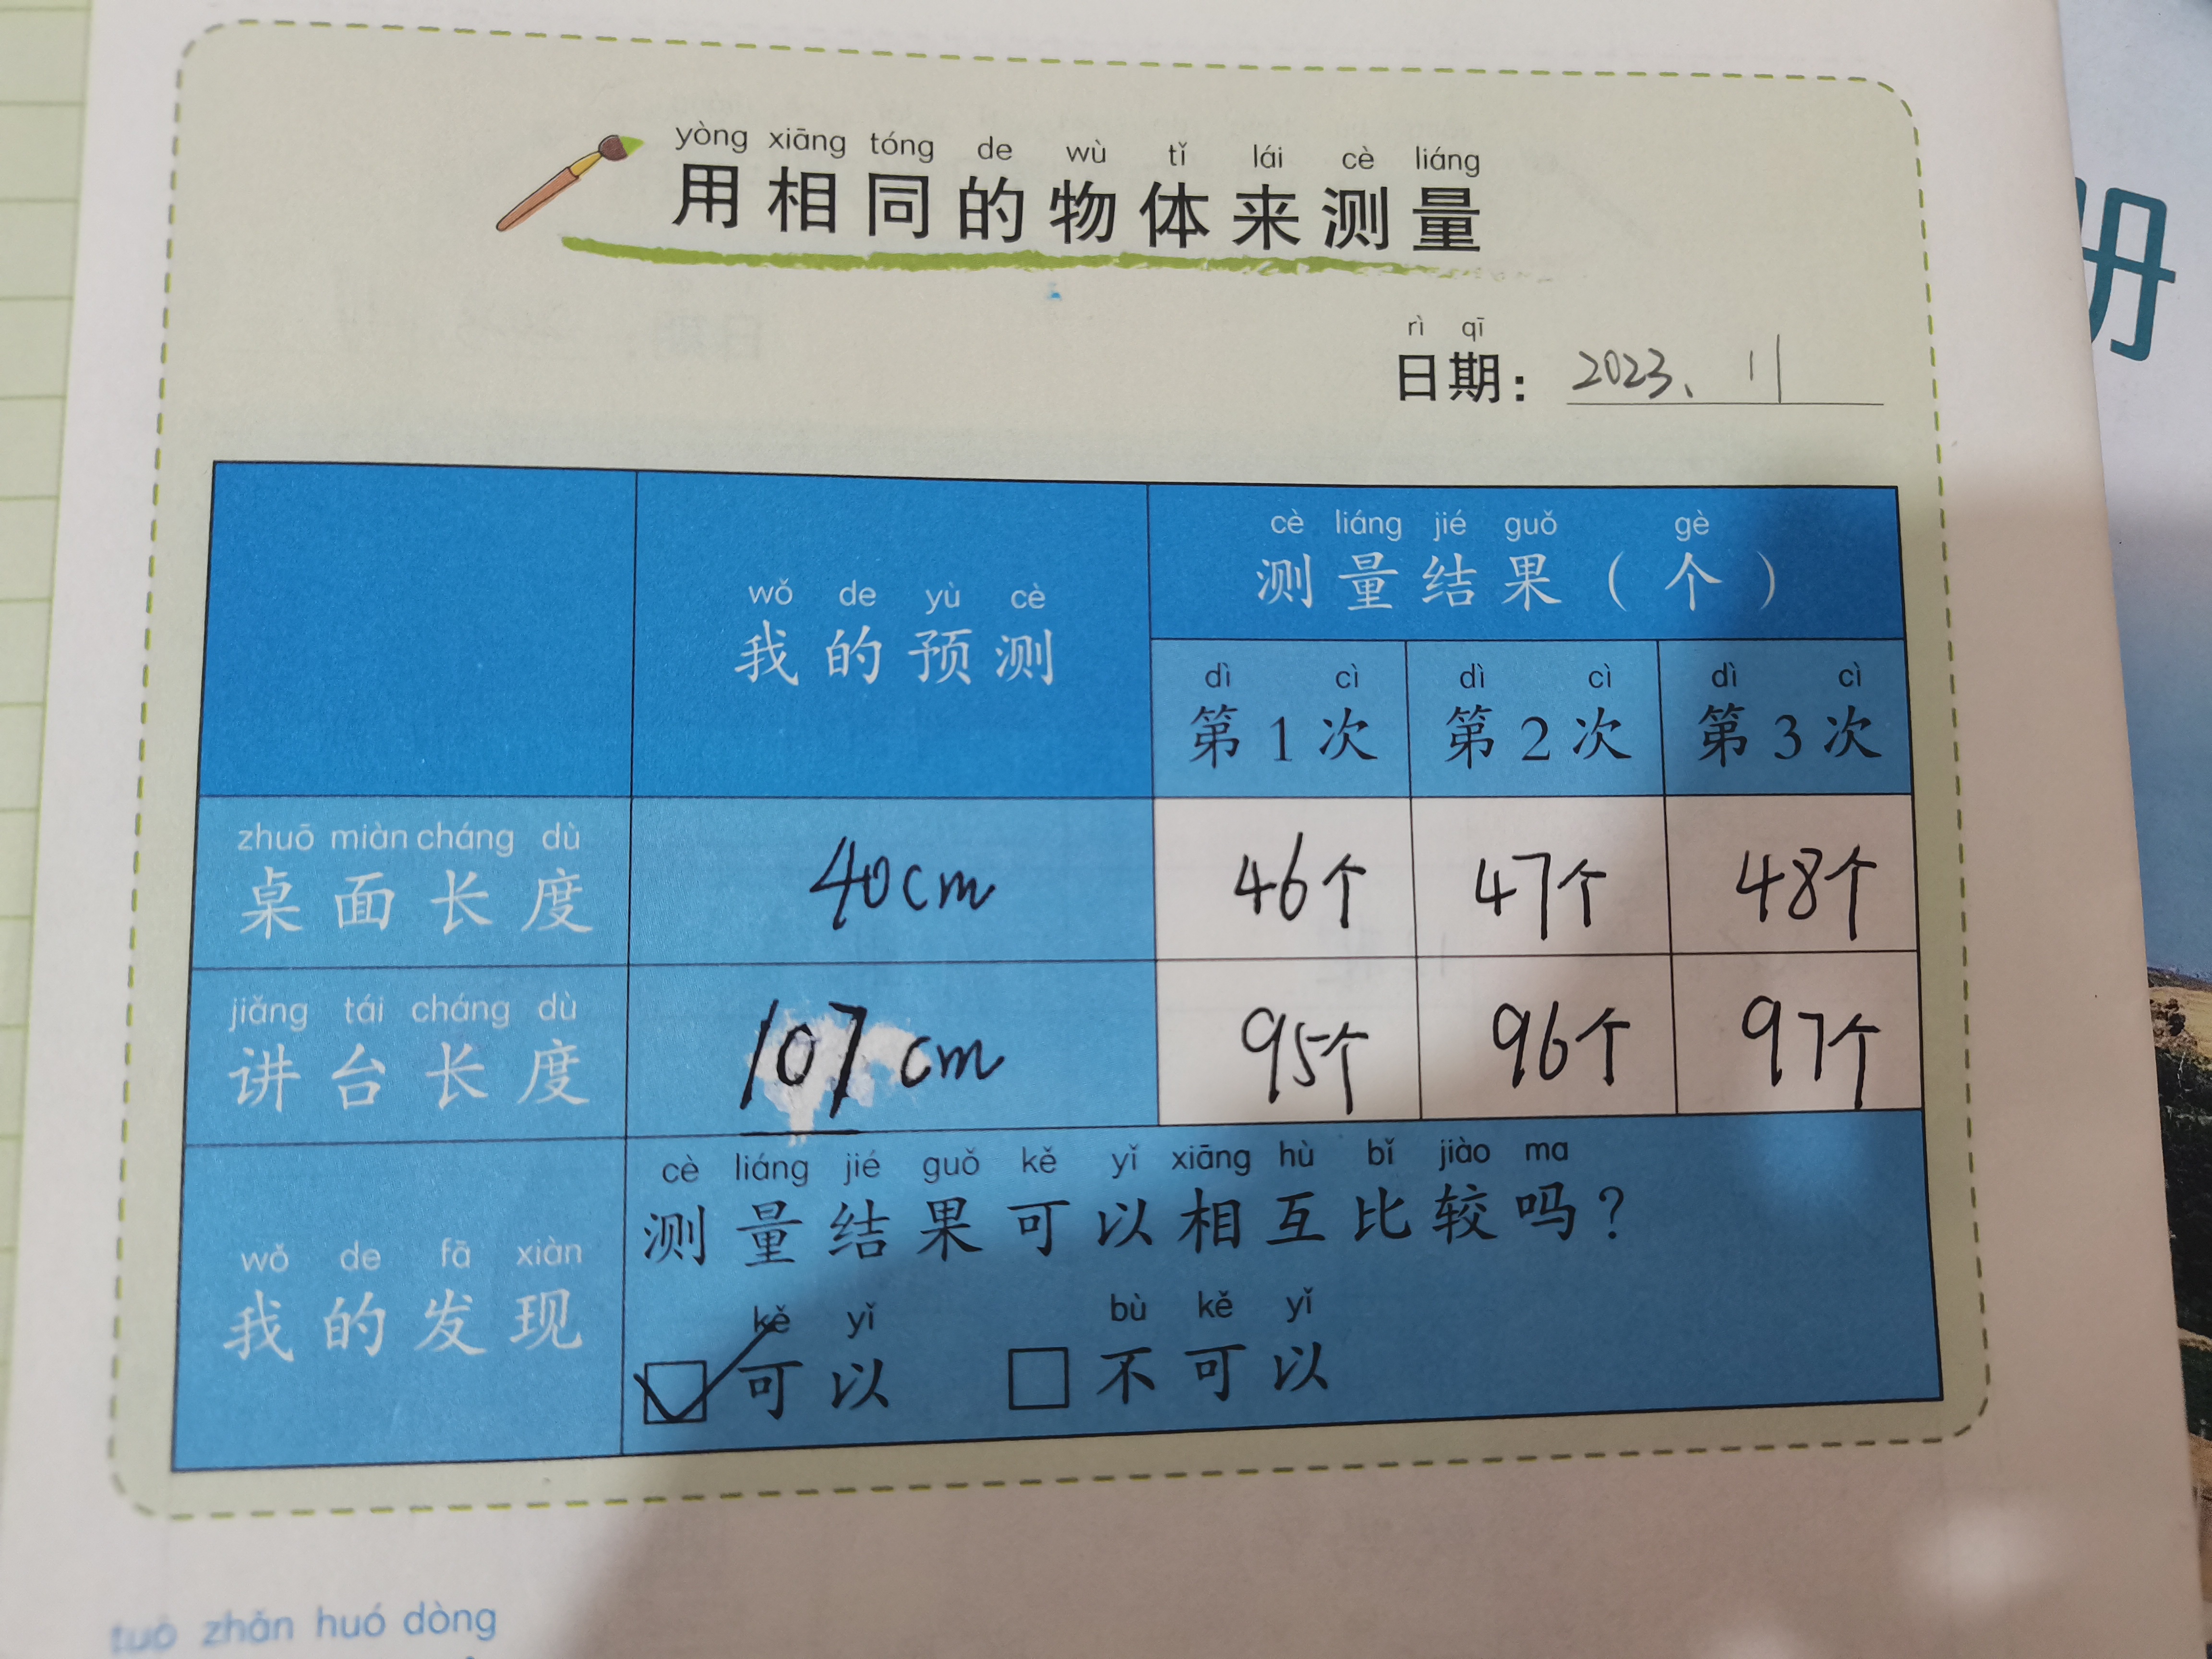 yòng xiāng tóng de wù tǐ lái cè liáng
用相同的物体来测量
册
rì qī
日期：2023、 11
cè liáng jié guǒ gè
测量结果（个）
wǒ de yù cè
我的预测
dì cì dì cì dì cì
第1次 第2次 第3次
zhuō miàn cháng dù
桌面长度 40cm 46个 47个 48个
jiǎng tái cháng dù
讲台长度 107cm 95个 96个 97个
cè liáng jié guǒ kě yǐ xiāng hù bǐ jiào ma
测量结果可以相互比较吗？
wǒ de fā xiàn
我的发现
kě yǐ bù kě yǐ
☑可以 □不可以
tuò zhǎn huó dòng